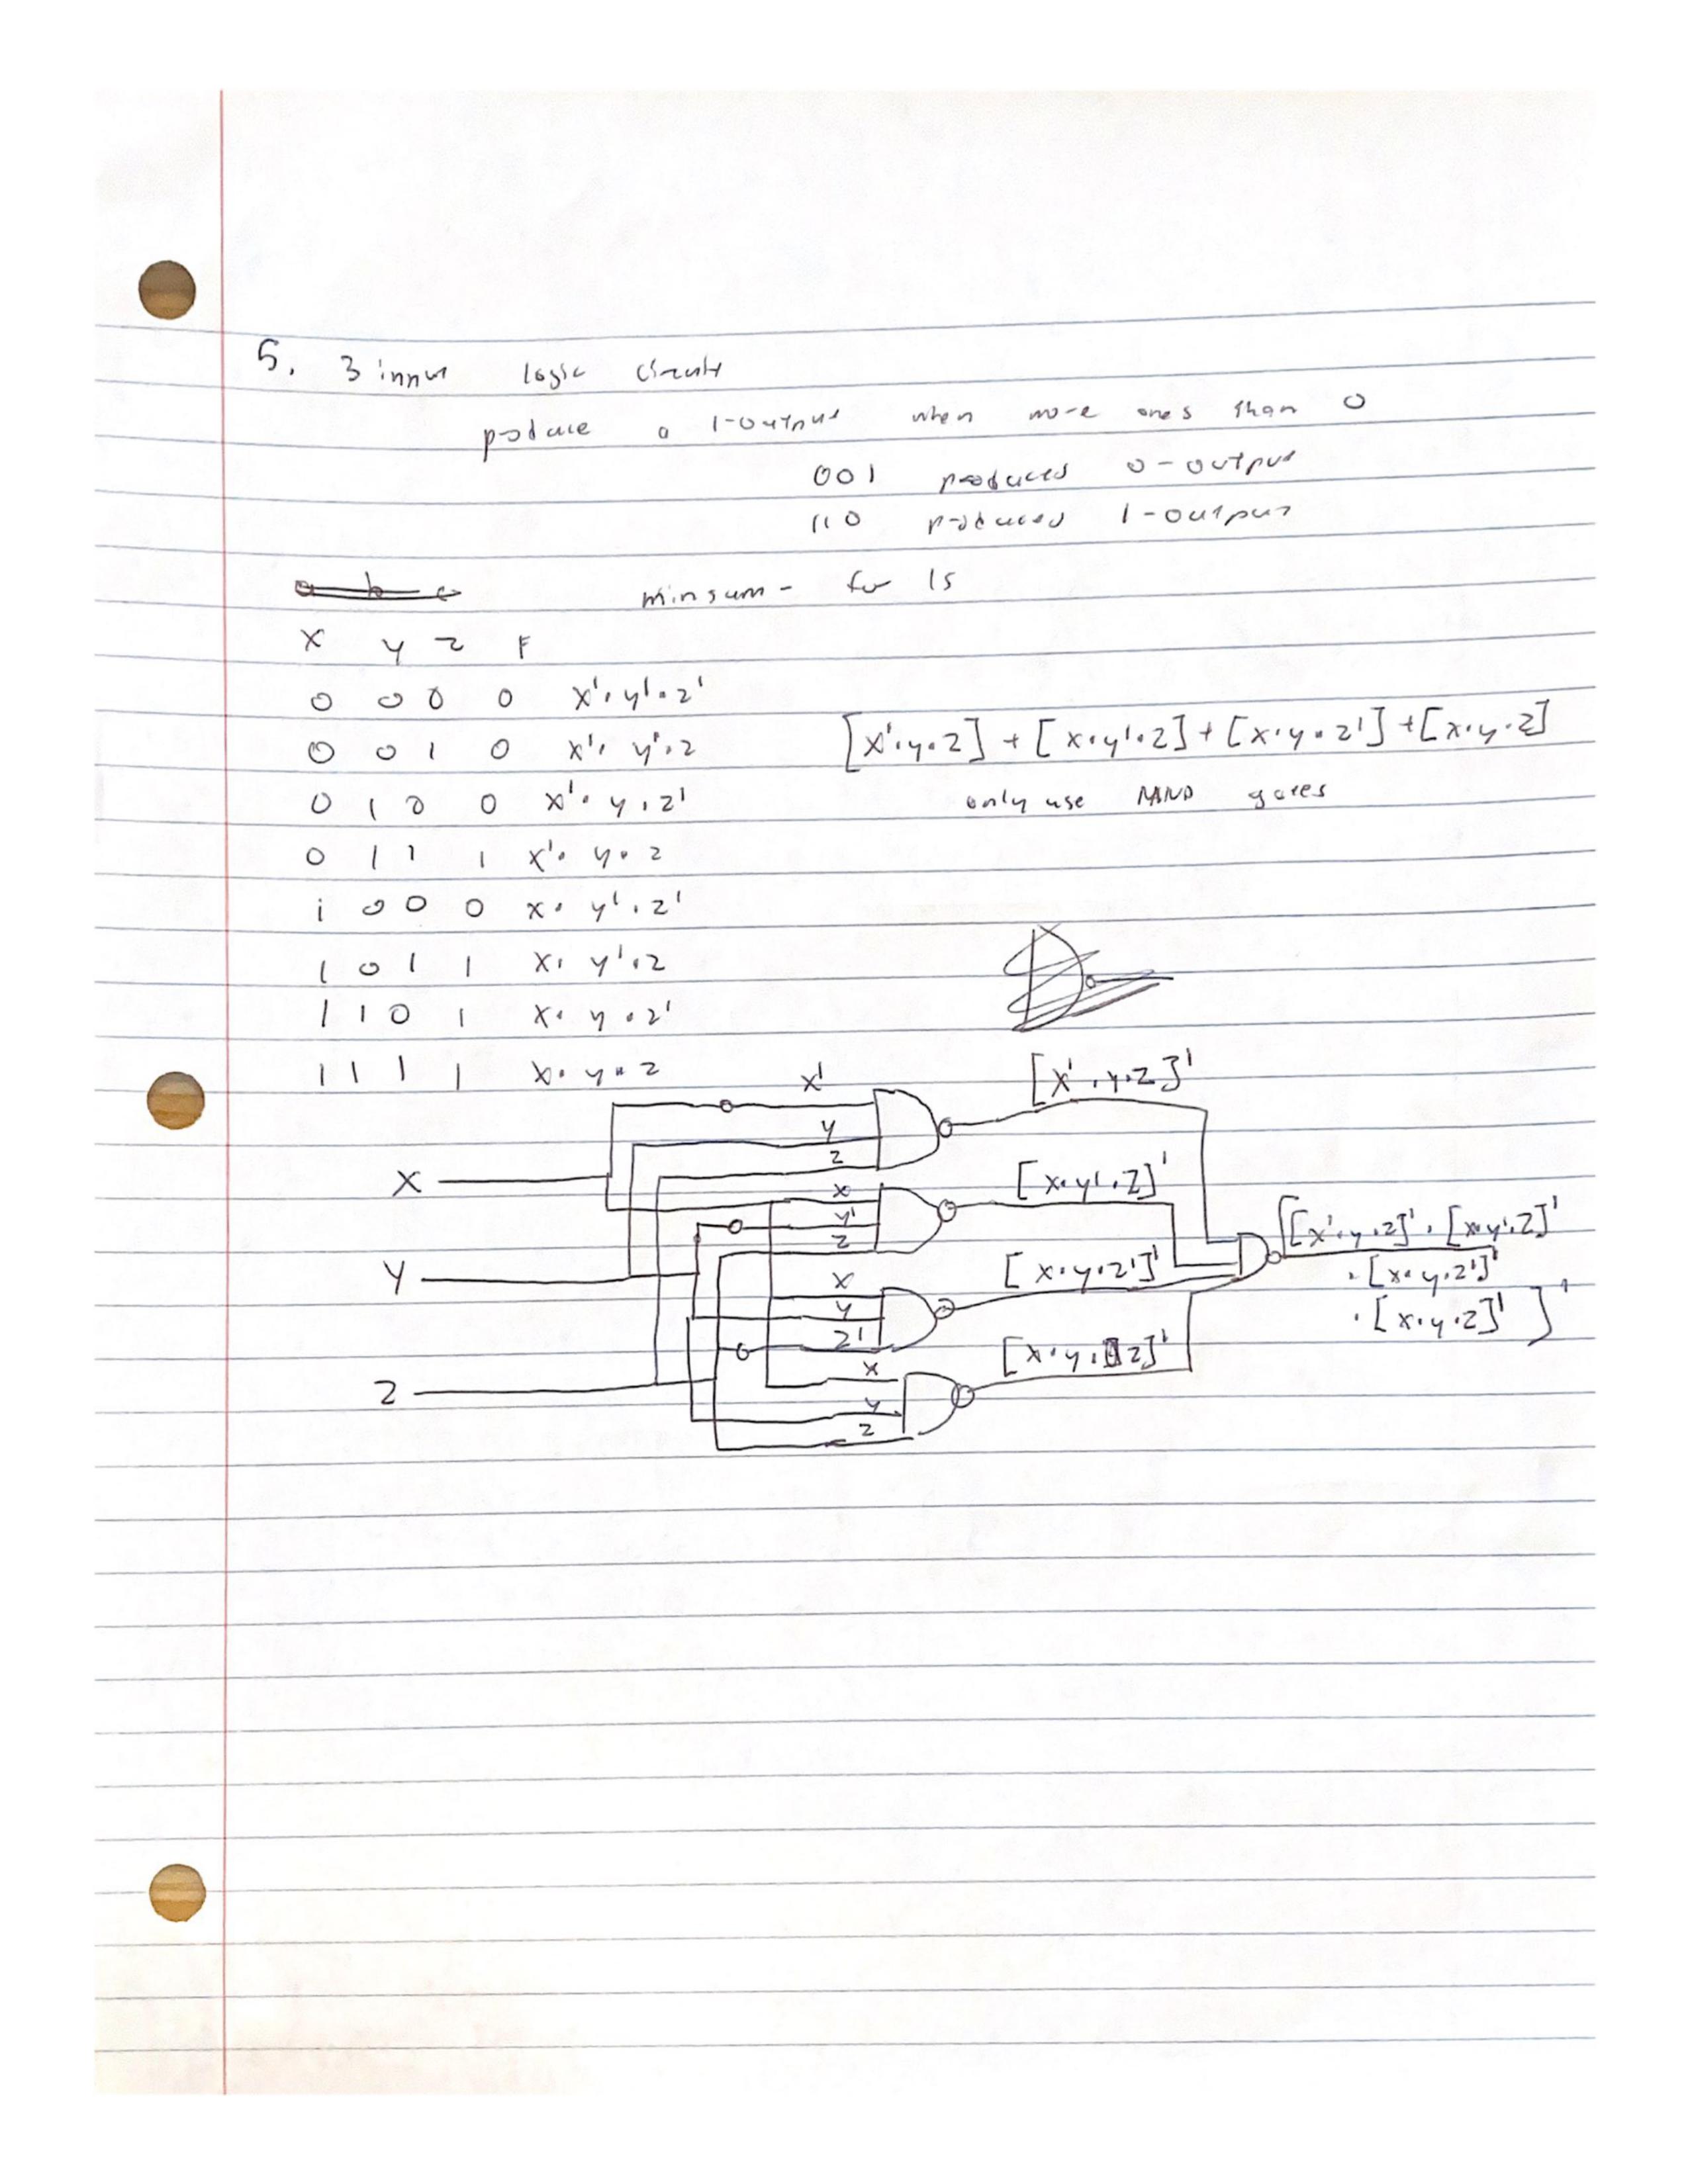 5. 3 input logic circuit
produce a 1-output when more ones than 0
001 produces 0-output
110 produces 1-output
minsum - for 1s
x y z F
0 0 0 0 x'·y'·z'
0 0 1 0 x'·y'·z
0 1 0 0 x'·y·z'
0 1 1 1 x'·y·z
1 0 0 0 x·y'·z'
1 0 1 1 x·y'·z
1 1 0 1 x·y·z'
1 1 1 1 x·y·z
[x'·y·z] + [x·y'·z] + [x·y·z'] + [x·y·z]
only use NAND gates
x' [x'·y·z]'
y
z
X
x [x·y'·z]'
y'
z
Y
x [x·y·z']'
y
z'
Z
x [x·y·z]'
y
z
[[x'·y·z]'·[x·y'·z]'
·[x·y·z']'
·[x·y·z]']'